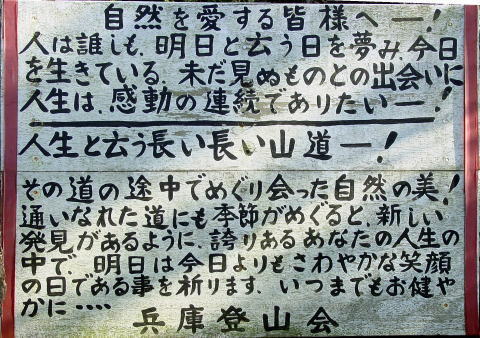 自然を愛する皆様へ―!
人は誰しも、明日と云う日を夢み、今日
を生きている。未だ見ぬものとの出会いに
人生は、感動の連続でありたい―!
人生と云う長い長い山道―!
その道の途中でめぐり会った自然の美!
通いなれた道にも季節がめぐると、新しい
発見があるように、誇りあるあなたの人生の
中で、明日は今日よりもさわやかな笑顔
の日である事を祈ります。いつまでもお健や
かに‥‥
兵庫登山会